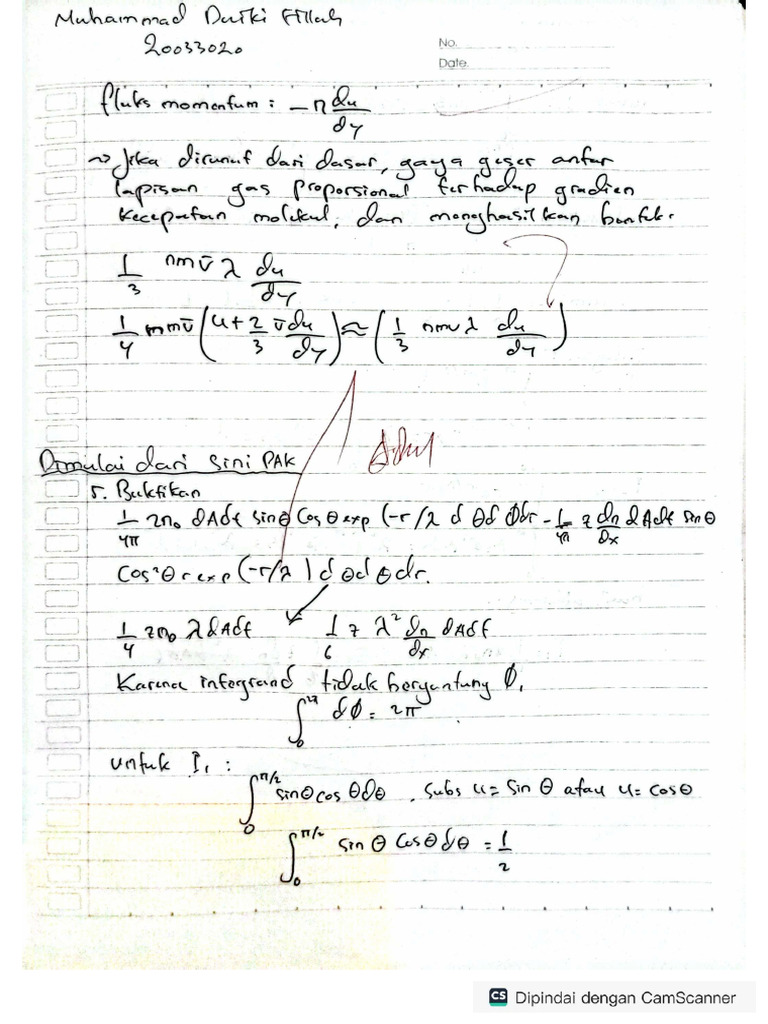 Muhammad Dziki Fillah
20033020
No.
Date.
fluks momentum : -η du/dy
~> Jika dirunut dari dasar, gaya geser antar
lapisan gas proporsional terhadap gradien
kecepatan molekul, dan menghasilkan bentuk.
1/3 nmv̄ λ du/dy
1/4 nmv̄ (u + 2/3 v̄ du/dy) ≈ (1/3 nmv λ du/dy)
Dimulai dari sini PAK
5. Buktikan
1/4π zn₀ dAdt sinθ cosθ exp (-r/λ d θd ϕdr - 1/4π z dn/dx dAdt sinθ
cos²θ r exp (-r/λ) d θd θdr.
1/4 zn₀ λdAdt 1/6 z λ² dn/dx dAdt
Karena integrand tidak bergantung ϕ,
∫₀^2π dϕ = 2π
untuk I₁ :
∫₀^π/2 sinθ cosθdθ , subs u = sin θ atau u = cosθ
∫₀^π/2 sin θ cosθdθ = 1/2
CS Dipindai dengan CamScanner